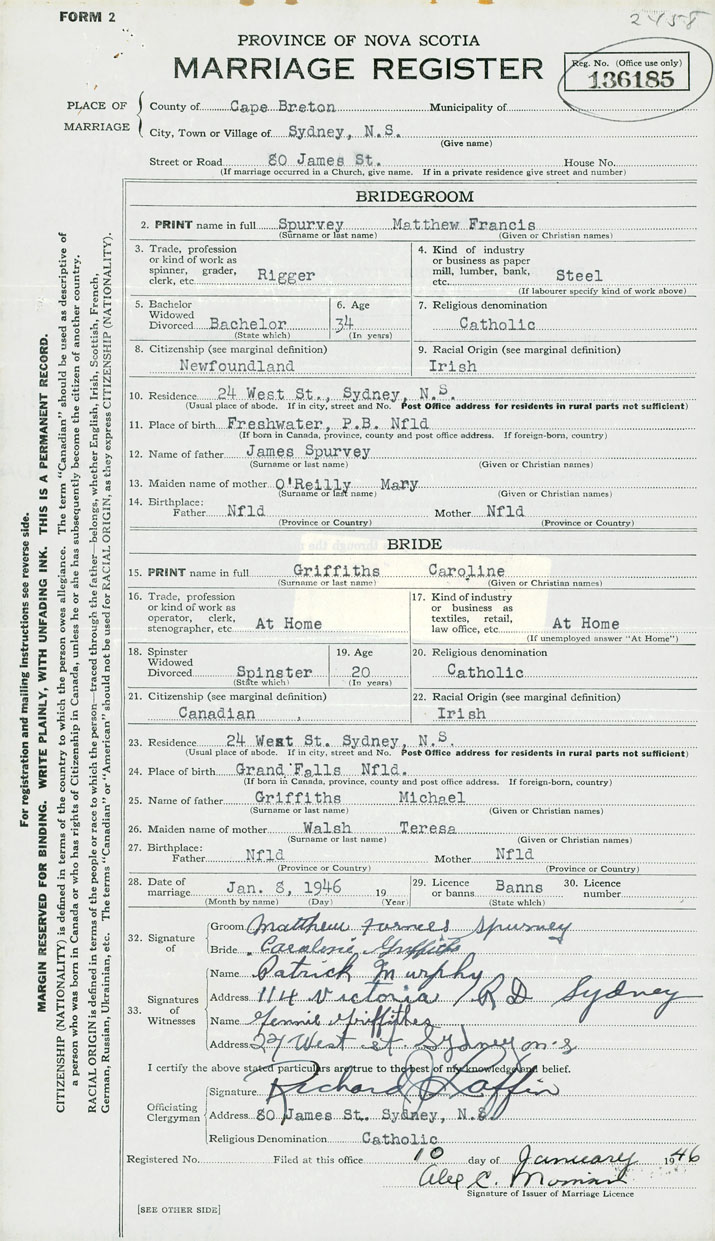 FORM 2
2458
PROVINCE OF NOVA SCOTIA
MARRIAGE REGISTER
Reg. No. (Office use only)
136185
PLACE OF MARRIAGE
County of Cape Breton Municipality of
City, Town or Village of Sydney, N.S.
(Give name)
Street or Road 80 James St. House No.
(If marriage occurred in a Church, give name. If in a private residence give street and number)
BRIDEGROOM
2. PRINT name in full Spurvey Matthew Francis
(Surname or last name) (Given or Christian names)
3. Trade, profession or kind of work as spinner, grader, clerk, etc. Rigger
4. Kind of industry or business as paper mill, lumber, bank, etc. Steel
(If labourer specify kind of work above)
5. Bachelor Widowed Divorced Bachelor
(State which)
6. Age 34
(In years)
7. Religious denomination
Catholic
8. Citizenship (see marginal definition)
Newfoundland
9. Racial Origin (see marginal definition)
Irish
10. Residence 24 West St., Sydney, N.S.
(Usual place of abode. If in city, street and No. Post Office address for residents in rural parts not sufficient)
11. Place of birth Freshwater, P.B. Nfld
(If born in Canada, province, county and post office address. If foreign-born, country)
12. Name of father James Spurvey
(Surname or last name) (Given or Christian names)
13. Maiden name of mother O'Reilly Mary
(Surname or last name) (Given or Christian names)
14. Birthplace:
Father Nfld Mother Nfld
(Province or Country) (Province or Country)
BRIDE
15. PRINT name in full Griffiths Caroline
(Surname or last name) (Given or Christian names)
16. Trade, profession or kind of work as operator, clerk, stenographer, etc. At Home
17. Kind of industry or business as textiles, retail, law office, etc. At Home
(If unemployed answer "At Home")
18. Spinster Widowed Divorced Spinster
(State which)
19. Age 20
(In years)
20. Religious denomination
Catholic
21. Citizenship (see marginal definition)
Canadian
22. Racial Origin (see marginal definition)
Irish
23. Residence 24 West St. Sydney, N.S.
(Usual place of abode. If in city, street and No. Post Office address for residents in rural parts not sufficient)
24. Place of birth Grand Falls Nfld.
(If born in Canada, province, county and post office address. If foreign-born, country)
25. Name of father Griffiths Michael
(Surname or last name) (Given or Christian names)
26. Maiden name of mother Walsh Teresa
(Surname or last name) (Given or Christian names)
27. Birthplace:
Father Nfld Mother Nfld
(Province or Country) (Province or Country)
28. Date of marriage Jan. 8, 1946 19
(Month by name) (Day) (Year)
29. Licence or banns Banns
(State which)
30. Licence number
32. Signature of
Groom Matthew Farnces Spurvey
Bride Caroline Griffiths
33. Signatures of Witnesses
Name Patrick Murphy
Address 114 Victoria RD Sydney
Name Jennie Griffithes
Address 27 West st Sydney n.s
I certify the above stated particulars are true to the best of my knowledge and belief.
Officiating Clergyman
Signature Richard Laffin
Address 80 James St. Sydney, N.S.
Religious Denomination Catholic
Registered No. Filed at this office 10 day of January 1946
Alex C.
Signature of Issuer of Marriage Licence
[SEE OTHER SIDE]
For registration and mailing instructions see reverse side.
MARGIN RESERVED FOR BINDING. WRITE PLAINLY, WITH UNFADING INK. THIS IS A PERMANENT RECORD.
CITIZENSHIP (NATIONALITY) is defined in terms of the country to which the person owes allegiance. The term "Canadian" should be used as descriptive of
a person who was born in Canada or who has rights of Citizenship in Canada, unless he or she has subsequently become the citizen of another country.
RACIAL ORIGIN is defined in terms of the people or race to which the person—traced through the father—belongs, whether English, Irish, Scottish, French,
German, Russian, Ukrainian, etc. The terms "Canadian" or "American" should not be used for RACIAL ORIGIN, as they express CITIZENSHIP (NATIONALITY).